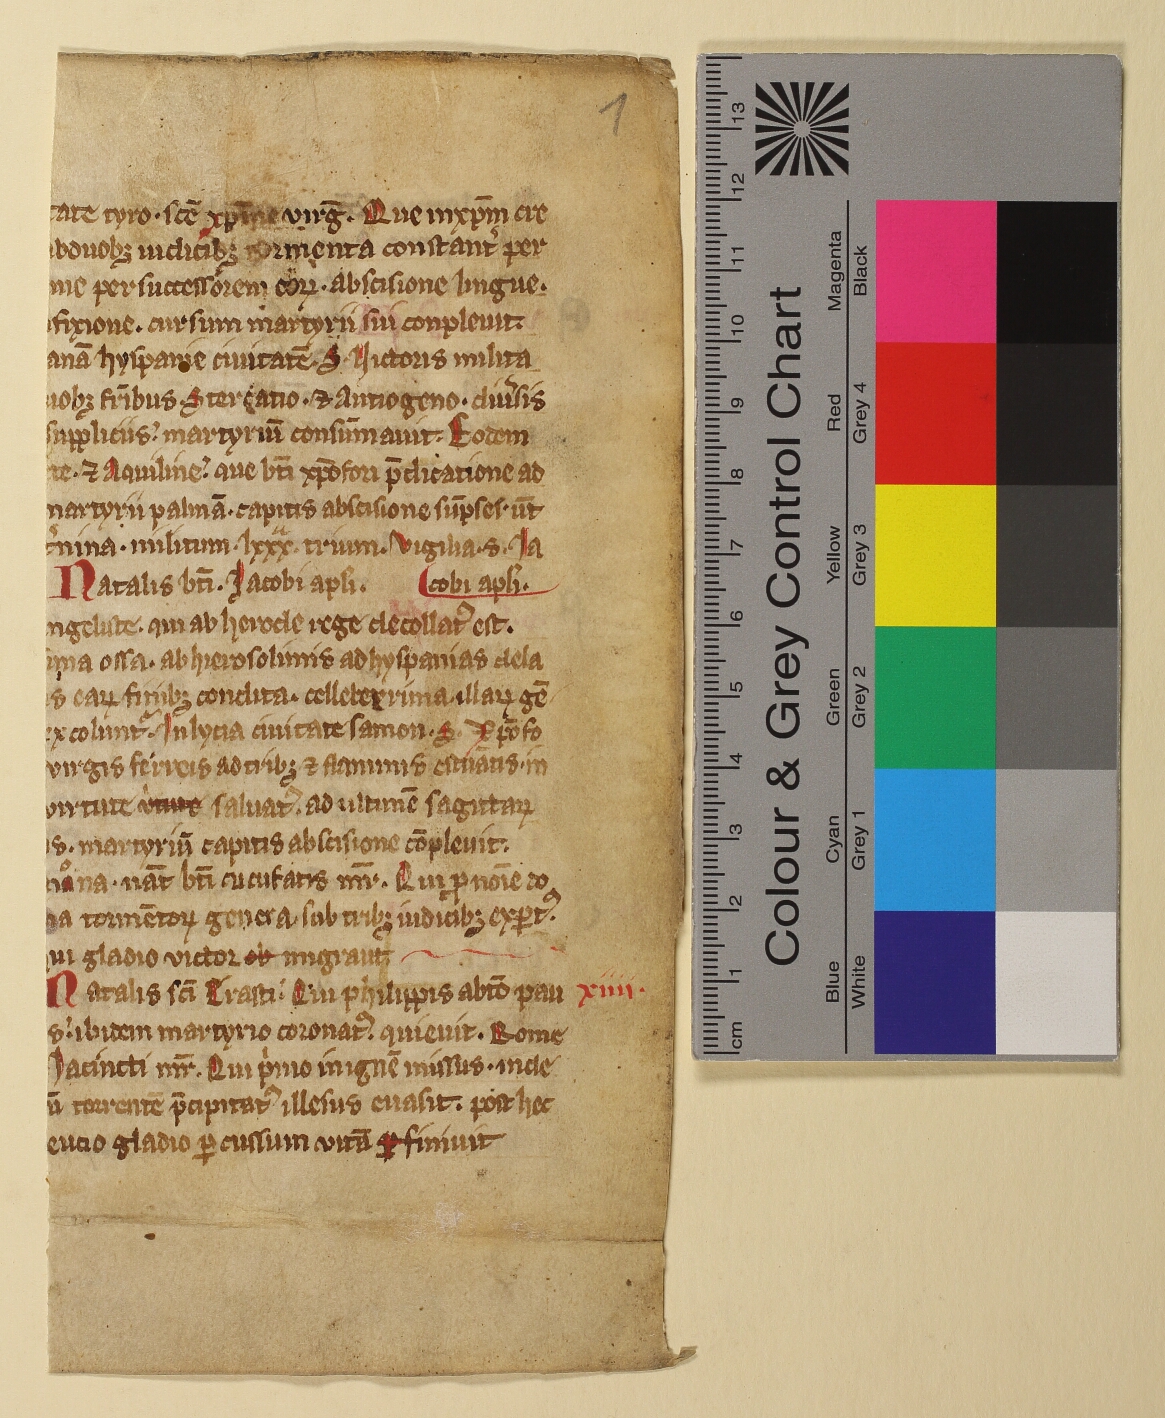 1
tate tyro. sc̄e xp̄ine virḡ. Que inxp̄m cre
abduobꝫ iudicibꝫ tormenta constant᷑ per
me per successorem eoꝝ. abscisione lingue.
fixione. cursum martyrii sui conpleuit.
anā hyspanie ciuitatē. S. Victoris milita
uobꝫ fr̄ibus. Stercatio. ⁊ Antiogeno. diu᷑sis
supplicus. martyriū consūmauit. Eodem
te. ⁊ Aquiline. que bt̄i xp̄ofori p̄dicatione ad
martyrii palmā. capitis abscisione sūpser̄ūt
nina. militum. lxxx. trium. Vigilia. s. Ia
Natalis bt̄i. Iacobi apl̄i. cobi apl̄i.
ngeliste. qui ab herode rege decollat᷑ est.
ima ossa. ab hierosolimis ad hyspanias dela
s eaꝝ finibꝫ condita. celleberrima illaꝝ gē
excolunt᷑. In lycia ciuitate samon. S. Xp̄ofo
virgis ferreis adtribꝫ ⁊ flammis estuātis. in
virtute saluat᷑. ad ultimū sagittaꝝ
s. martyriū capitis abscisione cōpleuit.
na. nat̄ bt̄i cucufatis mr̄. Qui p̄ noīe do
na tormētoꝝ genera. sub tribꝫ iudicibꝫ exp̄t᷑.
ui gladio victor migrauit
Natalis sc̄i Erasti. Qui philippis abt̄o pau xiiii.
s. ibidem martyrio coronat᷑. quieuit. Rome
Iacincti mr̄. Qui p̄mo in ignē missus. inde
ū torrentē p̄cipitat᷑ illesus euasit. post hec
eucio gladio ꝑcussum vitā finiuit
Colour & Grey Control Chart
cm 1 2 3 4 5 6 7 8 9 10 11 12 13
Blue Cyan Green Yellow Red Magenta
White Grey 1 Grey 2 Grey 3 Grey 4 Black